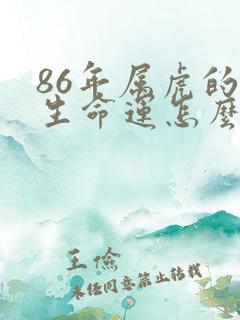 86年属虎的
生命运怎麽
王俭
未经同意禁止转载